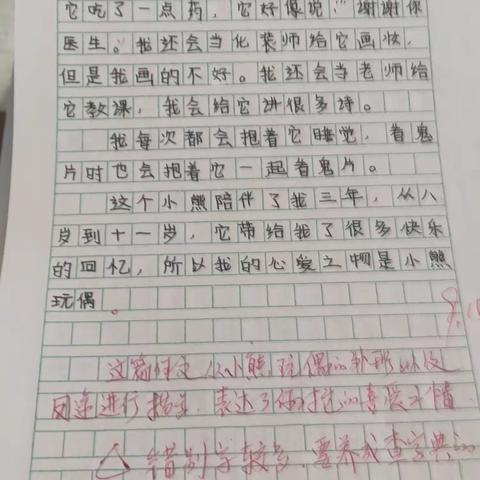 它吃了一点药，它好像说："谢谢你
医生。"我还会当化装师给它画妆，
但是我画的不好。我还会当老师给
它教课，我会给它讲很多诗。
我每次都会抱着它睡觉，看鬼
片时也会抱着它一起看鬼片。
这个小熊陪伴了我三年，从八
岁到十一岁，它带给我了很多快乐
的回忆，所以我的心爱之物是小熊
玩偶。
这篇作文从小熊玩偶的外形以及
进行描写，表达了你对它的喜爱之情
错别字较多，要养成查字典的